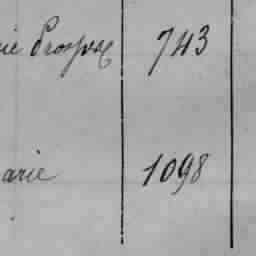 rie Prosper 743
arie 1098